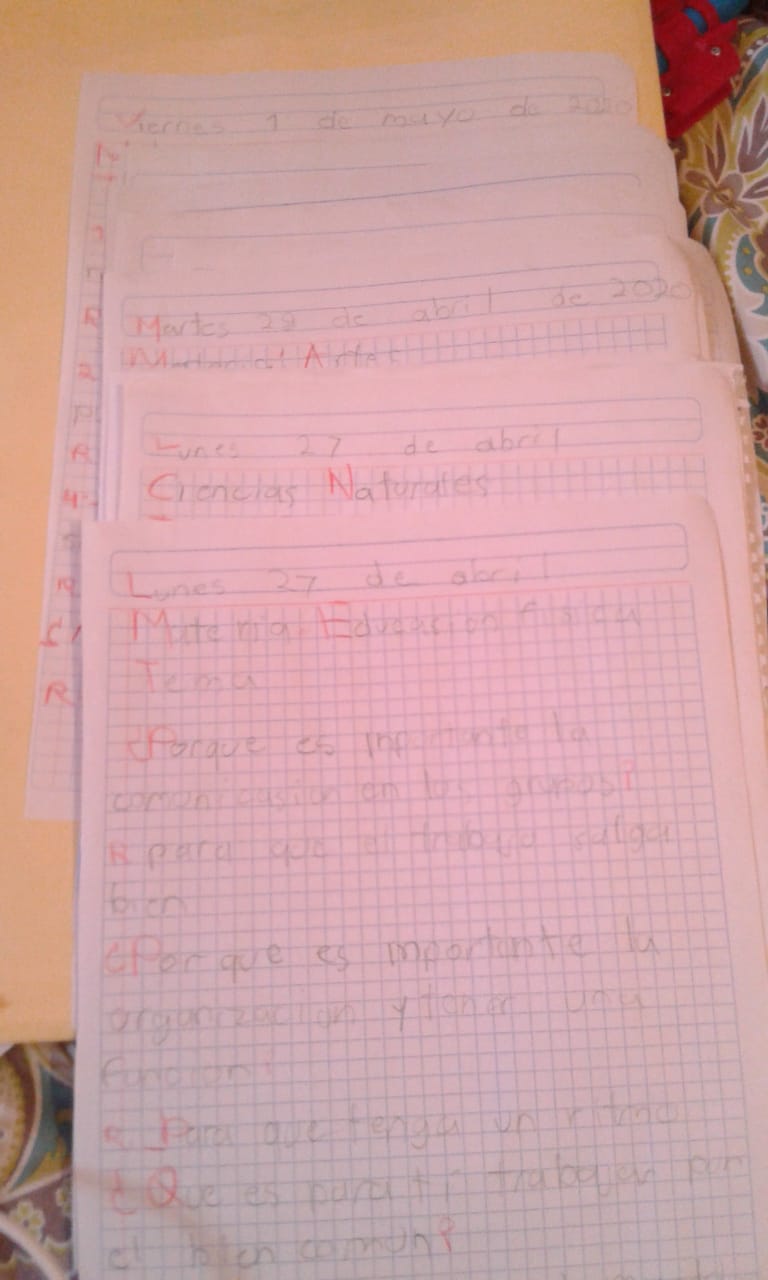 Viernes 1 de mayo de 2020
R
2
R
4
R
R
Martes 29 de abril de 2020
Material Artes
Lunes 27 de abril
Ciencias Naturales
Lunes 27 de abril
Materia Educacion fisica
Tema
¿Porque es importante la
comunicasion en los grupos?
R para que el trabajo salga
bien
¿Por que es mportante la
organizacion y tener una
funcion?
R Para que tenga un ritmo
¿Que es para ti trabajar por
el bien comun?